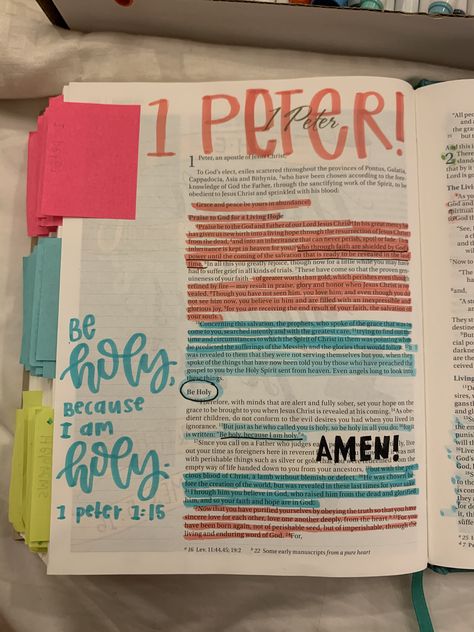 1 PETER!
1 Peter
1 Peter, an apostle of Jesus Christ,
To God's elect, exiles scattered throughout the provinces of Pontus, Galatia,
Cappadocia, Asia and Bithynia, ²who have been chosen according to the fore-
knowledge of God the Father, through the sanctifying work of the Spirit, to be
obedient to Jesus Christ and sprinkled with his blood:
Grace and peace be yours in abundance.
Praise to God for a Living Hope
³Praise be to the God and Father of our Lord Jesus Christ! In his great mercy he
has given us new birth into a living hope through the resurrection of Jesus Christ
from the dead, ⁴and into an inheritance that can never perish, spoil or fade. This
inheritance is kept in heaven for you, ⁵who through faith are shielded by God's
power until the coming of the salvation that is ready to be revealed in the last
time. ⁶In all this you greatly rejoice, though now for a little while you may have
had to suffer grief in all kinds of trials. ⁷These have come so that the proven gen-
uineness of your faith—of greater worth than gold, which perishes even though
refined by fire—may result in praise, glory and honor when Jesus Christ is re-
vealed. ⁸Though you have not seen him, you love him; and even though you do
not see him now, you believe in him and are filled with an inexpressible and
glorious joy, ⁹for you are receiving the end result of your faith, the salvation of
your souls.
¹⁰Concerning this salvation, the prophets, who spoke of the grace that was to
come to you, searched intently and with the greatest care, ¹¹trying to find out the
time and circumstances to which the Spirit of Christ in them was pointing when
he predicted the sufferings of the Messiah and the glories that would follow. ¹²It
was revealed to them that they were not serving themselves but you, when they
spoke of the things that have now been told you by those who have preached the
gospel to you by the Holy Spirit sent from heaven. Even angels long to look into
these things.
Be Holy
Therefore, with minds that are alert and fully sober, set your hope on the
grace to be brought to you when Jesus Christ is revealed at his coming. ¹⁴As obe-
dient children, do not conform to the evil desires you had when you lived in
ignorance. ¹⁵But just as he who called you is holy, so be holy in all you do; ¹⁶for it
is written: "Be holy, because I am holy."
Since you call on a Father who judges each
out your time as foreigners here in reverent
with perishable things such as silver or gold
empty way of life handed down to you from your ancestors, ¹⁹but with the pre-
cious blood of Christ, a lamb without blemish or defect. ²⁰He was chosen be-
fore the creation of the world, but was revealed in these last times for your sake.
²¹Through him you believe in God, who raised him from the dead and glorified
him, and so your faith and hope are in God.
²²Now that you have purified yourselves by obeying the truth so that you have
sincere love for each other, love one another deeply, from the heart. ²³For you
have been born again, not of perishable seed, but of imperishable, through the
living and enduring word of God. ²⁴For,
ᵃ 16 Lev. 11:44,45; 19:2 ᵇ 22 Some early manuscripts from a pure heart
AMEN!
BE
holy,
BECAUSE
I AM
holy.
1 peter 1:15
2